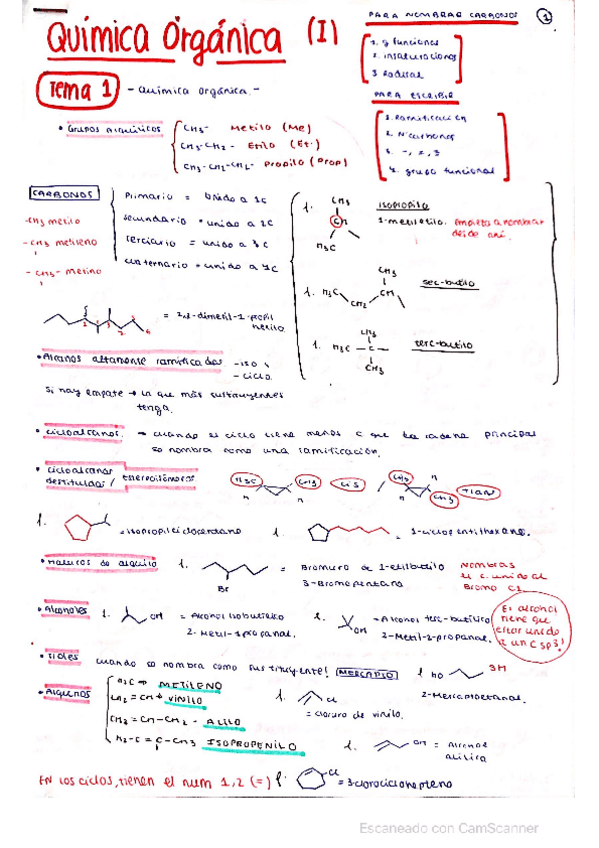 PARA NOMBRAR CARBONOS
1
Química Orgánica (I)
1. g funcional
2. insaturaciones
3 Radical
Tema 1
- Química orgánica. -
PARA ESCRIBIR
1. Ramificación
2. Nº carbonos
3. -, =, ≡
4. grupo funcional
• Grupos alquílicos
CH3- Metilo (Me)
CH3-CH2- Etilo (Et.)
CH3-CH2-CH2- Propilo (Prop)
CARBONOS
Primario = unido a 1C
secundario = unido a 2C
terciario = unido a 3C
cuaternario = unido a 4C
-CH3 metilo
-CH2 metileno
-CH3- metino
1.
CH3
CH
H3C
isopropilo
1-metiletilo. empieza a nombrar
desde ahí.
1. H3C
CH2
CH
CH3
sec-butilo
1. H3C - C -
CH3
CH3
terc-butilo
-dimetil-1-propil
• Alcanos altamente ramificados
- iso
- ciclo.
Si hay empate → la que más sustituyentes
tenga.
• cicloalcanos. → cuando el ciclo tiene menos C que la cadena principal
se nombra como una ramificación.
• cicloalcanos
destituidos / estereoisómeros
H3C
CH3
cis
H
H
CH3
CH3
trans
H
H
1.
1.
= 1-ciclopentilhexano.
1.
Br
= Bromuro de 1-etilbutilo
3-Bromo
Nombras
el c. unido al
Bromo C1
• Alcoholes
1.
OH = Alcohol isobutílico
2-Metil-1-propanol.
1.
OH
= Alcohol terc-butílico
2-Metil-2-propanol.
El alcohol
tiene que
estar unido
a un C sp3!
• Tioles
cuando se nombra como sustituyente! MERCAPTO
1. HO
SH
2-Mercaptoetanol.
• Alquenos
H2C = METILENO
CH2 = CH VINILO
CH2 = CH-CH2 - ALILO
H2-C = C-CH3 ISOPROPENILO
1.
Cl
= cloruro de vinilo.
1.
OH = Alcohol
alílico
EN los ciclos, tienen el num 1,2 (=)
Cl
= 3-clorociclo
Escaneado con CamScanner